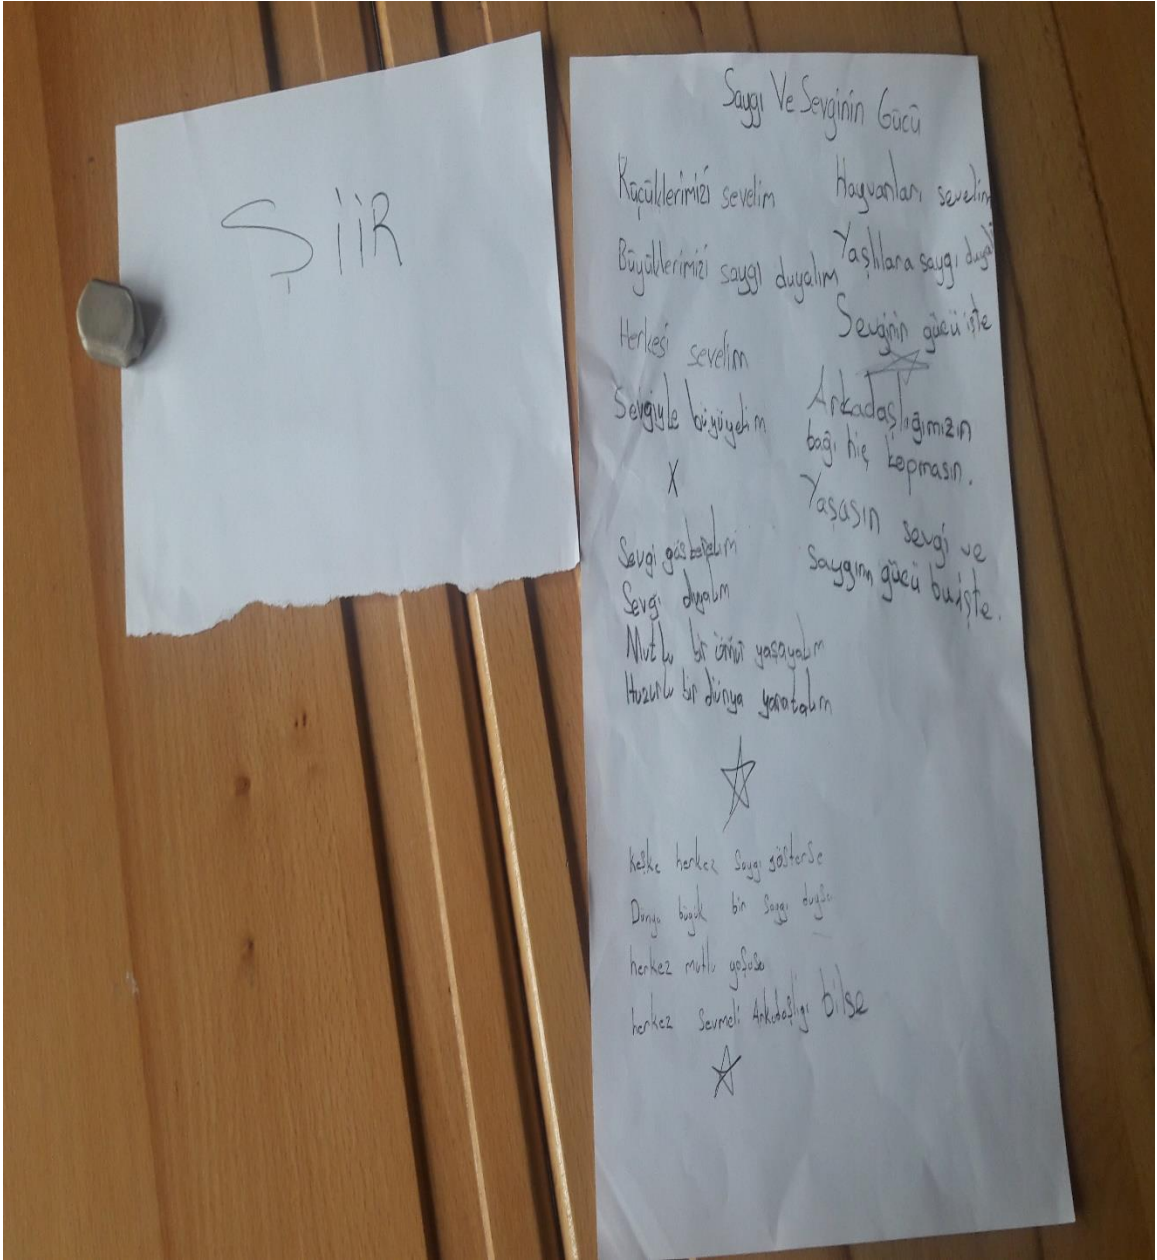 ŞİİR
Saygı Ve Sevginin Gücü
Küçüklerimizi sevelim
Büyüklerimizi saygı duyalım
Herkesi sevelim
Sevgiyle büyüyelim
X
Sevgi gösterelim
Sevgi duyalım
Mutlu bir ömür yaşayalım
Huzurlu bir dünya yaratalım
Keşke herkez saygı gösterse
Dünya büyük bir saygı duysa
herkez mutlu yaşasa
herkez sevmeli Arkadaşlığı bilse
Hayvanları sevelim
Yaşlılara saygı
Sevginin gücü işte
Arkadaşlığımızın
bağı hiç kopmasın.
Yaşasın sevgi ve
saygının gücü bu işte.